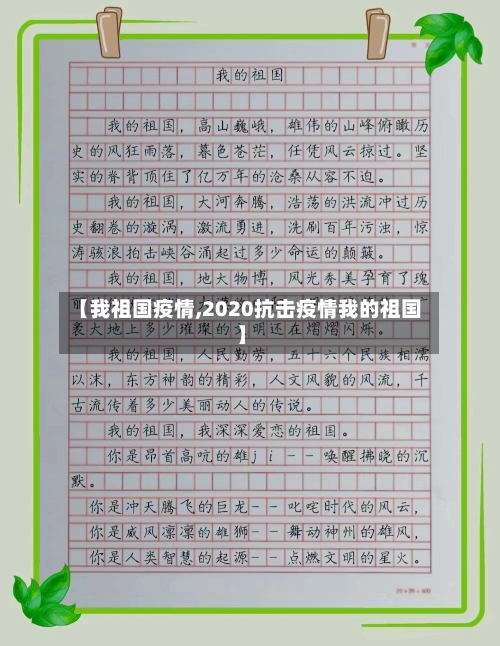 我的祖国
我的祖国，高山巍峨，雄伟的山峰俯瞰历
史的风狂雨落，暮色苍茫，任凭风云掠过。坚
实的脊背顶住了亿万年的沧桑从容不迫。
我的祖国，大河奔腾，浩荡的洪流冲过历
史翻卷的漩涡，激流勇进，洗刷百年污浊，惊
涛骇浪拍击峡谷涌起过多少命运的颠簸。
我的祖国，地大物博，风光秀美孕育了瑰
丽
【我祖国疫情,2020抗击疫情我的祖国
】
袤大地上多少璀璨的文明还在熠熠闪烁。
我的祖国，人民勤劳，五十六个民族相濡
以沫，东方神韵的精彩，人文风貌的风流，千
古流传着多少美丽动人的传说。
我的祖国，我深深爱恋的祖国。
你是昂首高吭的雄ji--唤醒拂晓的沉
默。
你是冲天腾飞的巨龙--叱咤时代的风云，
你是威风凛凛的雄狮--舞动神州的雄风，
你是人类智慧的起源--点燃文明的星火。
20×20=400